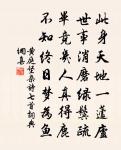 此身天地一蘧廬
世事消磨綠鬢疏
畢竟幾人真得鹿
不知終日夢為魚
黃庭堅雜詩七首詞典網集